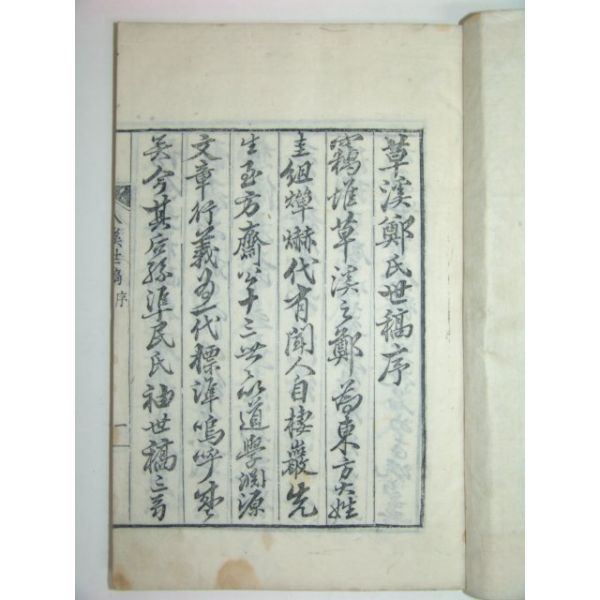 草溪鄭氏世稿序
竊惟草溪之鄭爲東方大姓
圭組燀爀代有聞人自棲巖先
生至方齋公十三世以道學淵源
文章行義爲一代標準嗚呼盛
矣今其后孫準民氏袖世稿三
八溪世稿 序 一